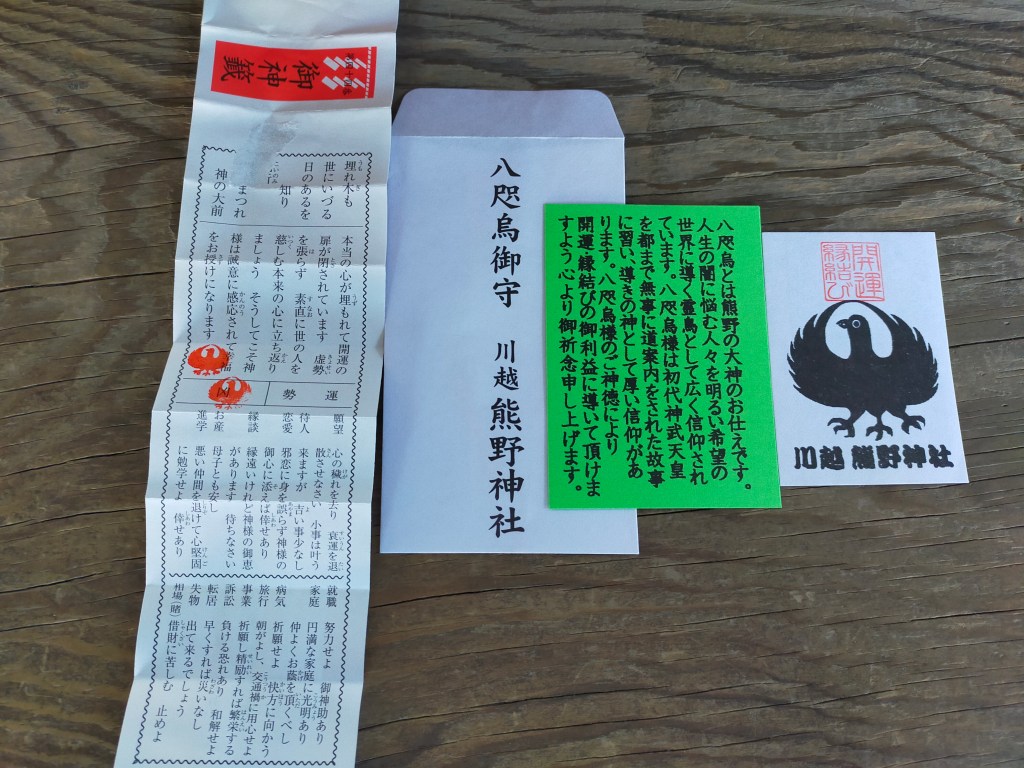 御神籤
埋れ木も
世にいづる
日のあるを
知り
まつれ
神の大前
本当の心が埋もれて開運の
扉が閉されています　虚勢
を張らず　素直に世の人を
慈しむ本来の心に立ち返り
ましょう　そうしてこそ神
様は誠意に感応されて
をお授けになります
運
勢
凶
願望　心の穢れを去り　哀運を退
散させなさい　小事は叶う
待人　来ますが　吉い事少なし
恋愛　邪恋に身を誤らず神様の
御心に添えば倖せあり
縁談　縁遠いけれど神様の御恵
があります　待ちなさい
お産　母子とも安し
進学　悪い仲間を退けて心堅固
に勉学せよ　倖せあり
就職　努力せよ　御神助あり
家庭　円満な家庭に光明あり
仲よくお蔭を頂くべし
病気　祈願せよ　快方に向かう
旅行　朝がよし、交通禍に用心せよ
事業　祈願し精励すれば繁栄する
訴訟　負ける恐れあり　和解せよ
転居　早くすれば災いなし
失物　出て来るでしょう
相場　借財に苦しむ　止めよ
八咫烏御守　川越熊野神社
八咫烏とは熊野の大神のお仕えです。
人生の闇に悩む人々を明るい希望の
世界に導く霊鳥として広く信仰され
ています。八咫烏様は初代神武天皇
を都まで無事に道案内をされた故事
に習い、導きの神として厚い信仰があ
ります。八咫烏様のご神徳により
開運・縁結びの御利益に導いて頂けま
すよう心より御祈念申し上げます。
開運
縁結び
川越 熊野神社